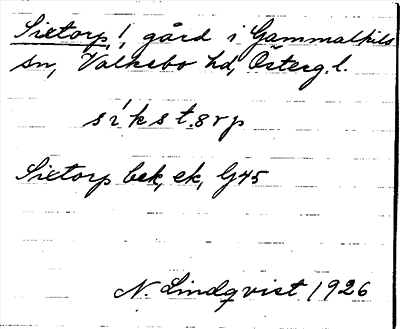 Sixtorp, !, gård i Gammalkils
sn, Valkebo hd, Österg. l.
síkstɐrp
Sixtorp bek, ek, G45
N. Lindqvist 1926